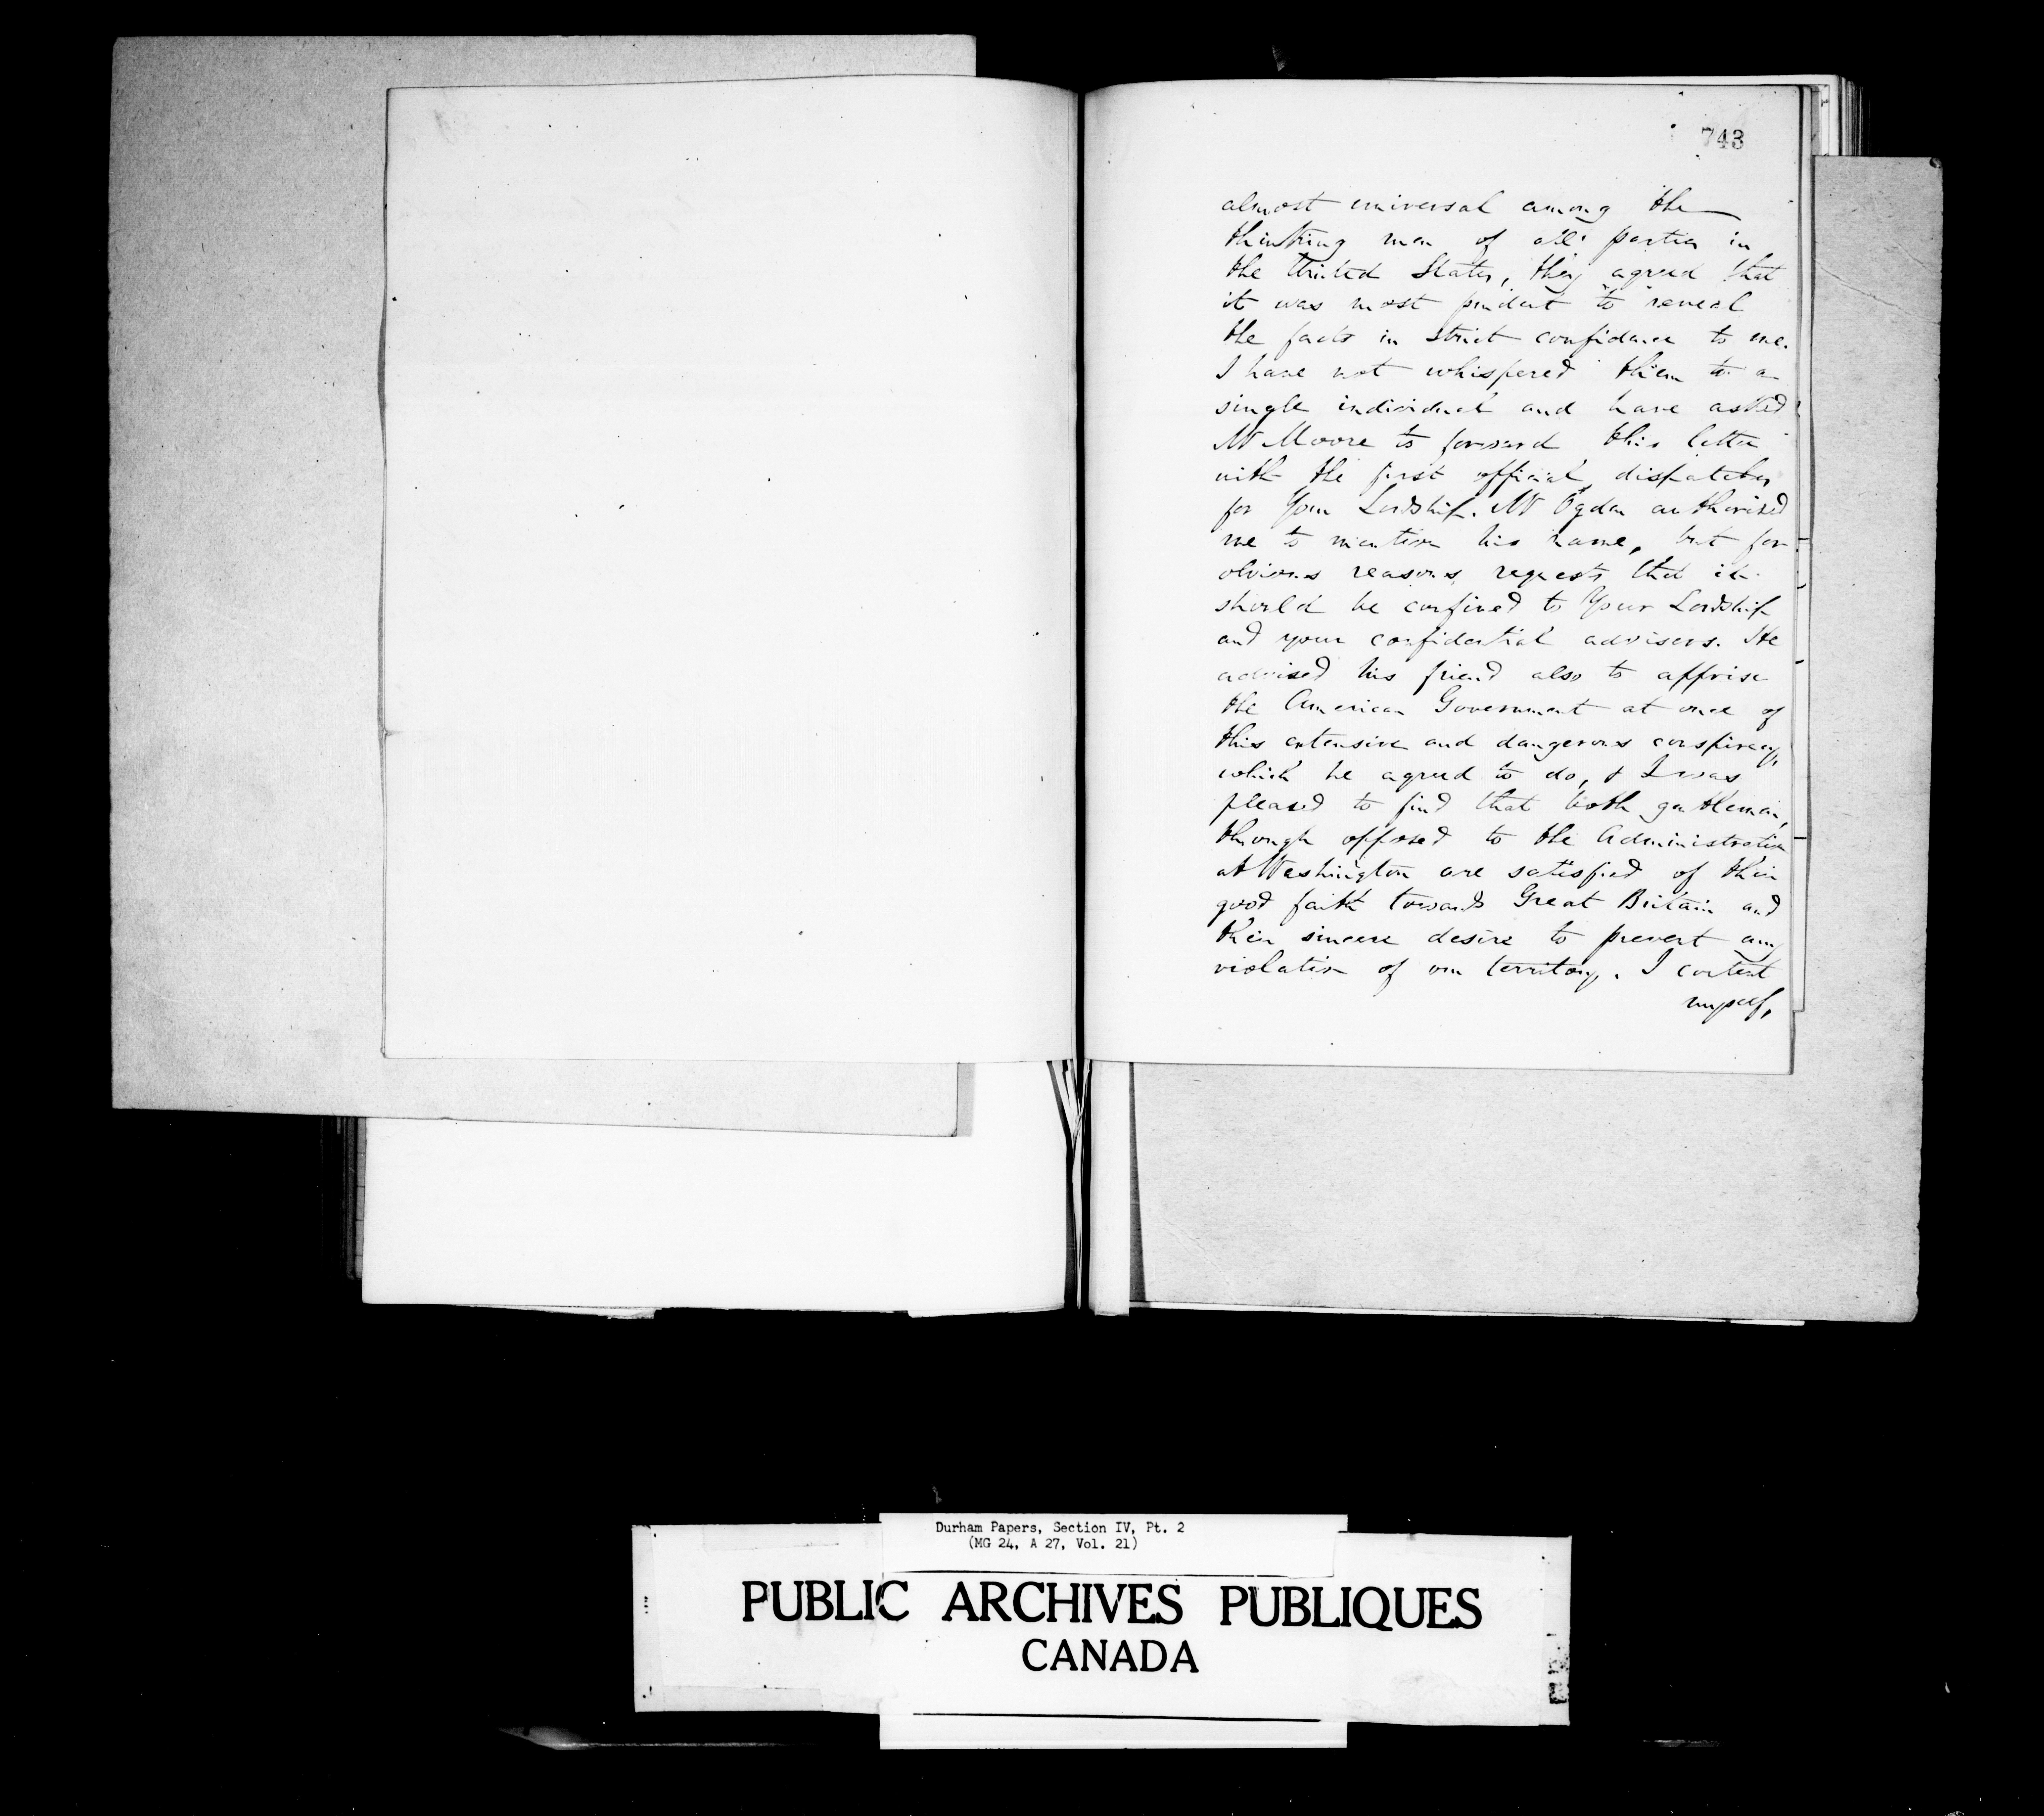 743
almost universal among the
thinking men of all parties in
the United States, they agreed that
it was most prudent to reveal
the facts in strict confidence to me.
I have not whispered them to a
single individual and have asked
Mr Moore to forward this letter
with the first official dispatches
for Your Lordship. Mr Ogden authorised
me to mention his name, but for
obvious reasons requests that it
should be confined to Your Lordship
and your confidential advisers. He
advised his friend also to apprise
the American Government at once of
this extensive and dangerous conspiracy,
which he agreed to do, & I was
pleased to find that both gentlemen,
though opposed to the Administration
at Washington are satisfied of their
good faith towards Great Britain and
their sincere desire to prevent any
violation of our territory. I content
myself,
Durham Papers, Section IV, Pt. 2
(MG 24, A 27, Vol. 21)
PUBLIC ARCHIVES PUBLIQUES
CANADA